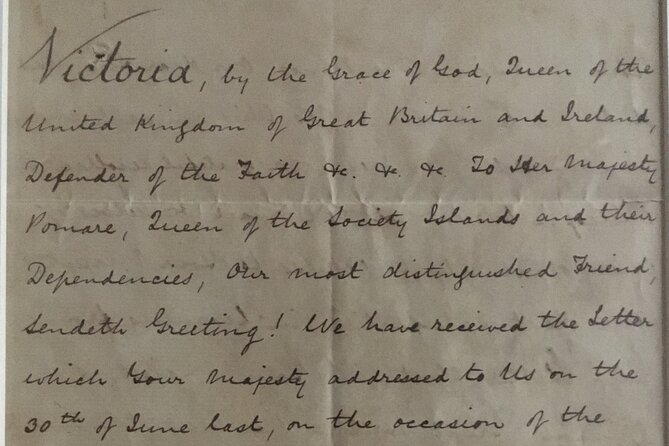 Victoria, by the Grace of God, Queen of the
United Kingdom of Great Britain and Ireland,
Defender of the Faith &c. &c. &c. To Her Majesty
Pomare, Queen of the Society Islands and their
Dependencies, Our most distinguished Friend,
Sendeth Greeting! We have received the Letter
which Your Majesty addressed to Us on the
30th of June last, on the occasion of the